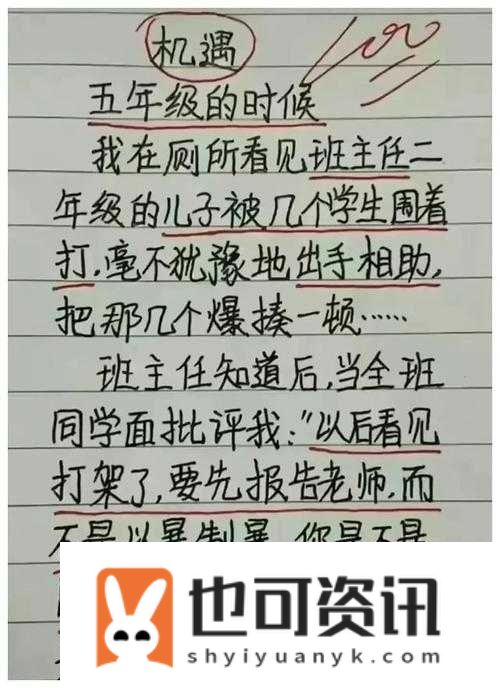 机遇
100
五年级的时候
我在厕所看见班主任二
年级的儿子被几个学生围着
打,毫不犹豫地出手相助,
把那几个爆揍一顿……
班主任知道后,当全班
同学面批评我:"以后看见
打架了,要先报告老师,而
不是以暴制暴,你是不是
也可资讯
shyiyuanyk.com